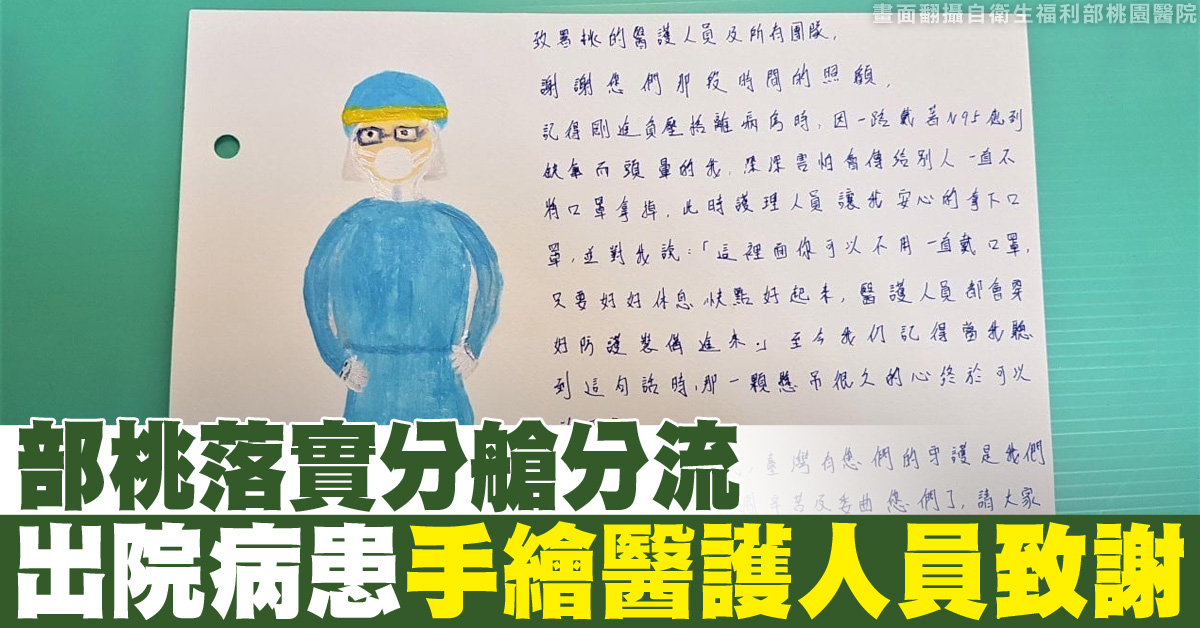 畫面翻攝自衛生福利部桃園醫院
致署桃的醫護人員及所有團隊,
謝謝您們那段時間的照顧,
記得剛進負壓隔離病房時,因一路戴著N95感到
缺氧而頭暈的我,深深害怕會傳給別人一直不
將口罩拿掉,此時護理人員讓我安心的拿下口
罩,並對我說:「這裡面你可以不用一直戴口罩,
又要好好休息快點好起來,醫護人員都會穿
好防護裝備進來。」至今我仍記得當我聽
到這句話時,那一顆懸吊很久的心終於可以
臺灣有您們的守護是我們
辛苦及委曲您們了,請大家
部桃落實分艙分流
出院病患手繪醫護人員致謝